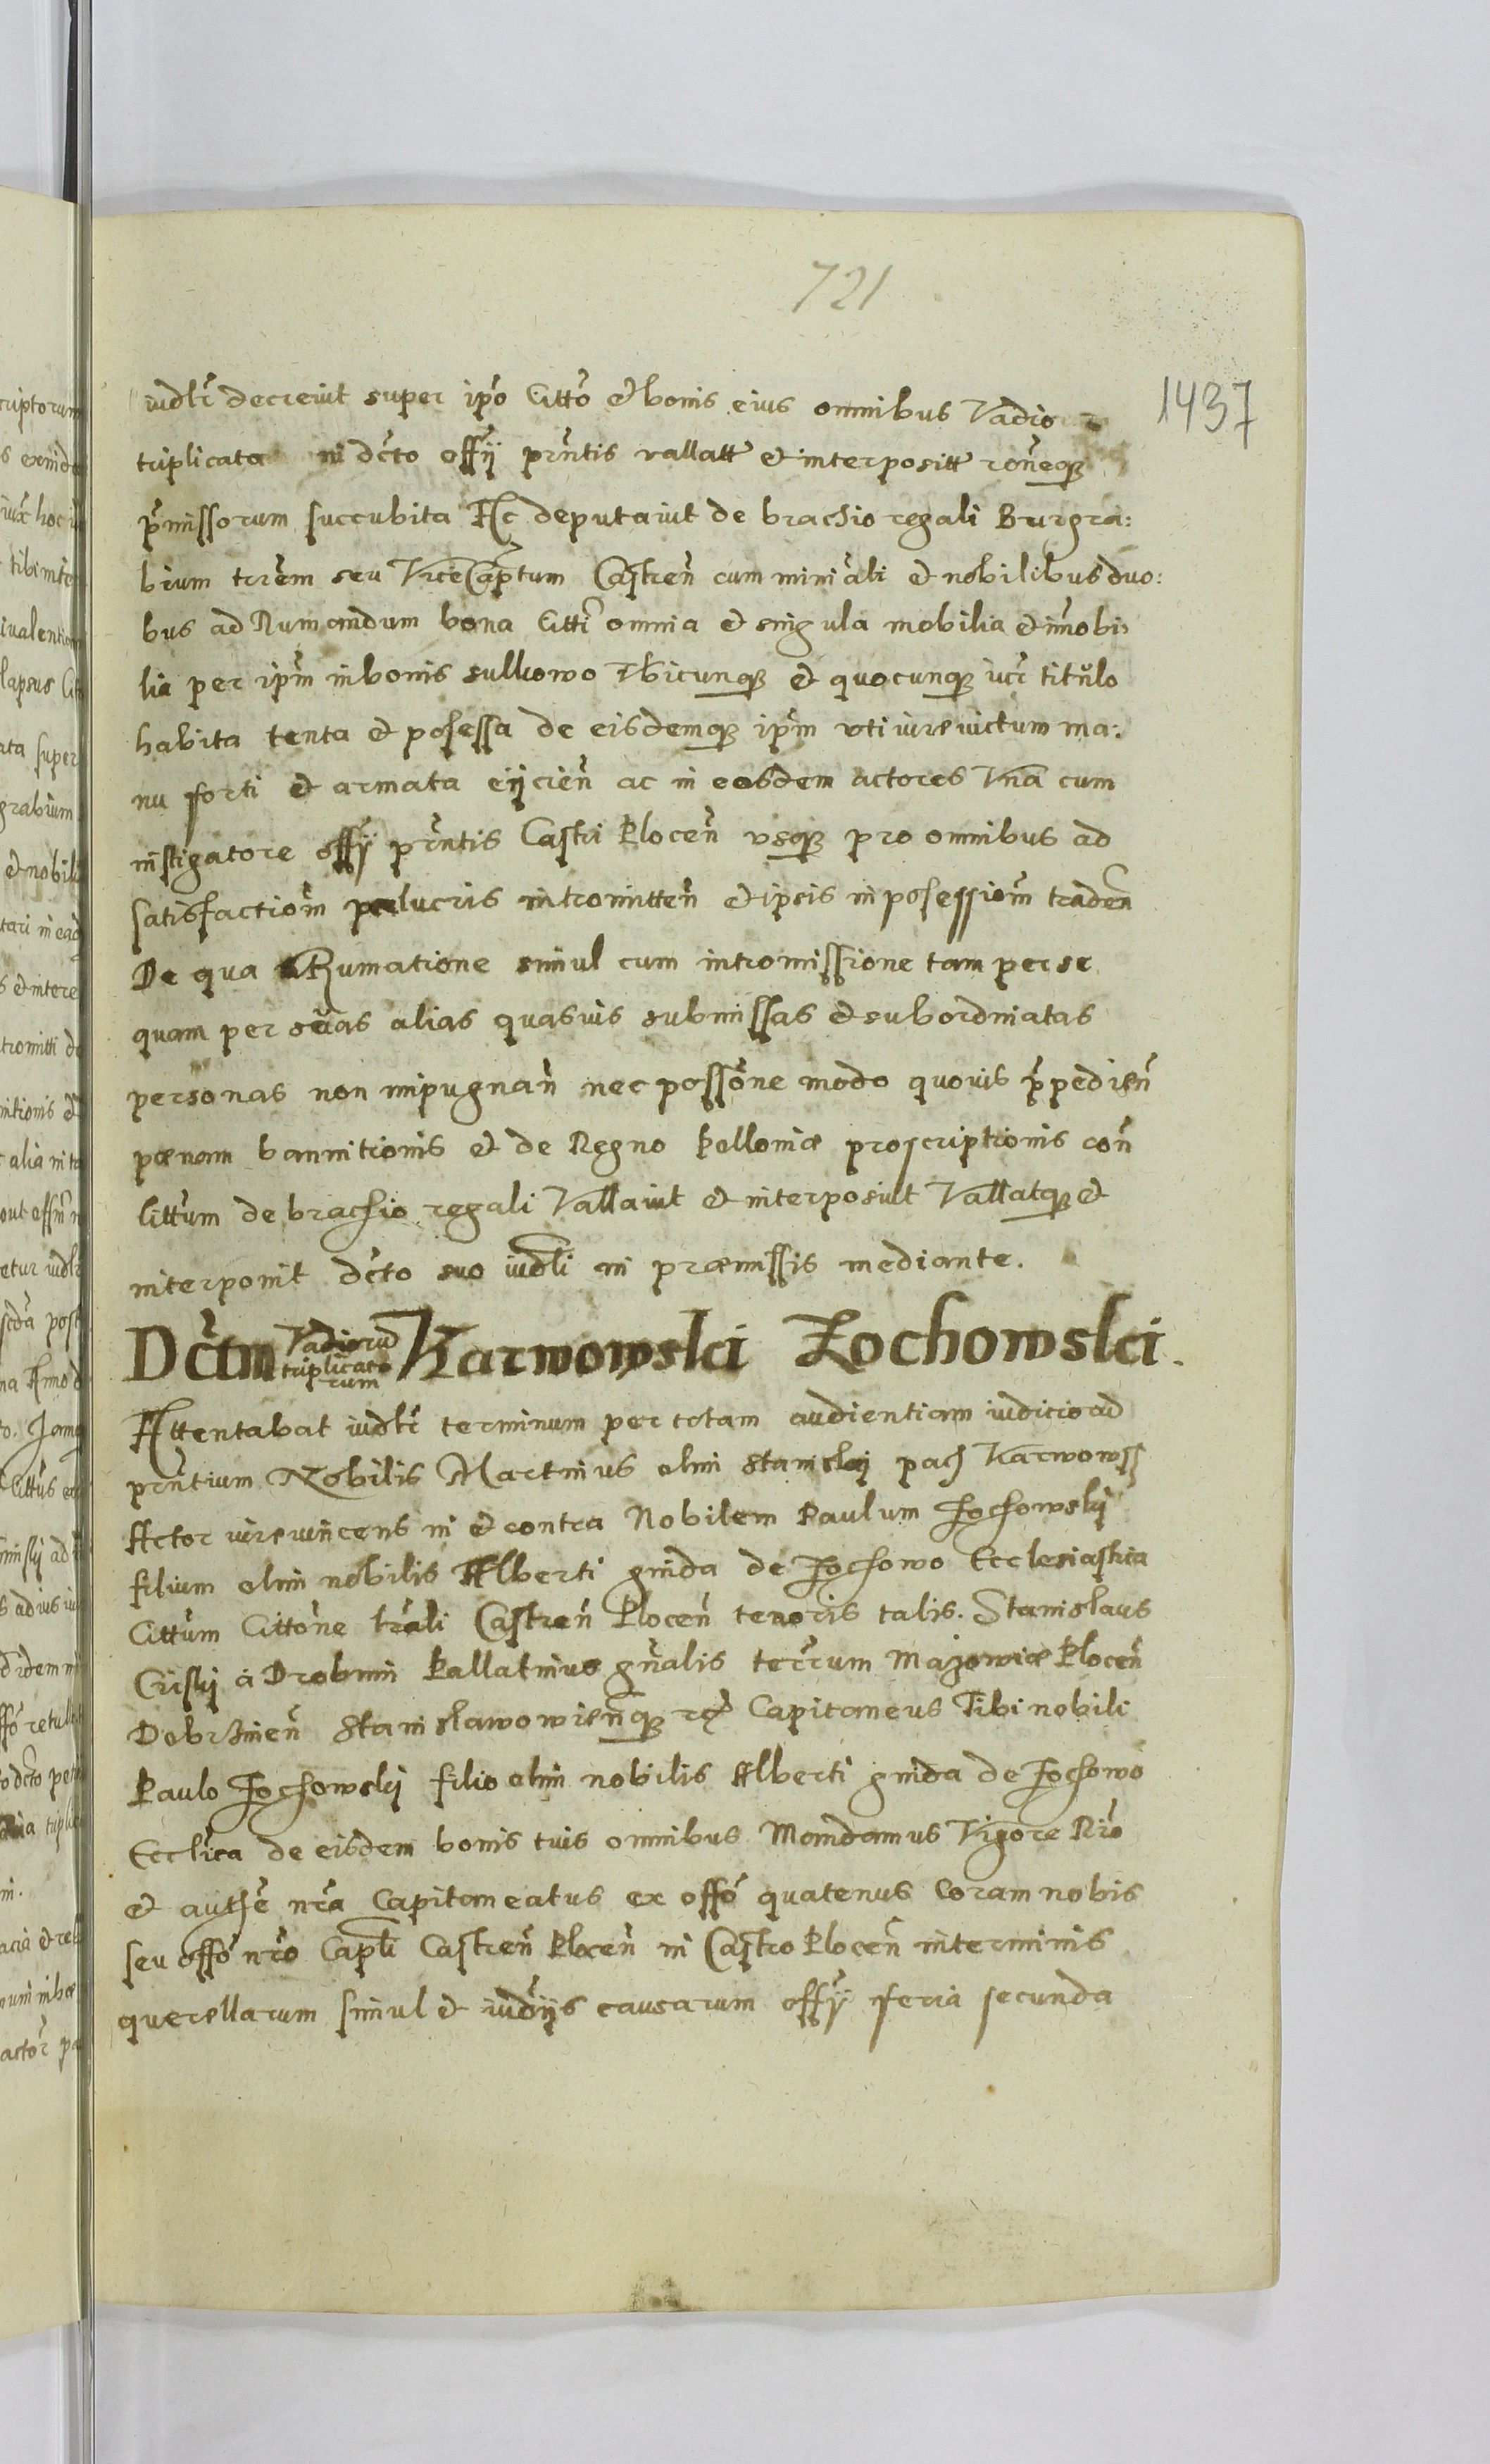 721
1437
iudlr decreuit super ipo Citto et bonis eius omnibus Vadio
triplicata in dcto offy prntis vallatt et interpositt roneq
pmissorum succubita Ac deputauit de brachio regali Burgra:
bium trrem seu ViceCaptum Castren cum miniali et nobilibus duo:
bus ad Rumandum bona Citti omnia et singula mobilia et imobi
lia per ipm in bonis sulkowo Vbicunq et quocunq iur titulo
habita tenta et posessa de eisdemq ipm vti iurevictum ma:
nu forti et armata eijcien ac in eosdem actores Vna cum
instigatore offy prntis Castri Plocen vsq pro omnibus ad
satisfactiom pro lucris intromitten et ipsis in posessiom traden
De qua Rumatione simul cum intromissione tam per se
quam per suas alias quasuis submissas et subordinatas
personas non impugnan nec possone modo quouis ppedien
pænam bannitionis et de Regno Polloniæ proscriptionis con
Cittum de brachio regali Vallauit et interposuit Vallatq et
interponit dcto suo iudli in præmissis mediante.
Dctm Vadioru triplicato rum Karwowski Zochowski.
Attentabat iudlr terminum per totam audientiam iudicio ad
prntium Nobilis Martinus olim Stanislai pach Karwowsk
Actor iurevincens in et contra Nobilem Paulum Zochowskj
filium olim nobilis Alberti gnida de Zochowo Ecclesiastica
Cittum Cittone lrali Castren Plocen tenoris talis. Stanislaus
Criskj à Drobnin Pallatinus gnalis terrum Mazowiæ Plocen
Dobrzinen Stanislawowienq etc Capitaneus Tibi nobili
Paulo Zochowskj filio olim nobilis Alberti gnida de Zochowo
Ecclica de eisdem bonis tuis omnibus Mandamus Vigore Nro
et authe nra Capitaneatus ex offo quatenus Coram nobis
seu offo nro Captli Castren Plocen in Castro Plocen in terminis
querellarum simul et iudijs causarum offy feria secunda